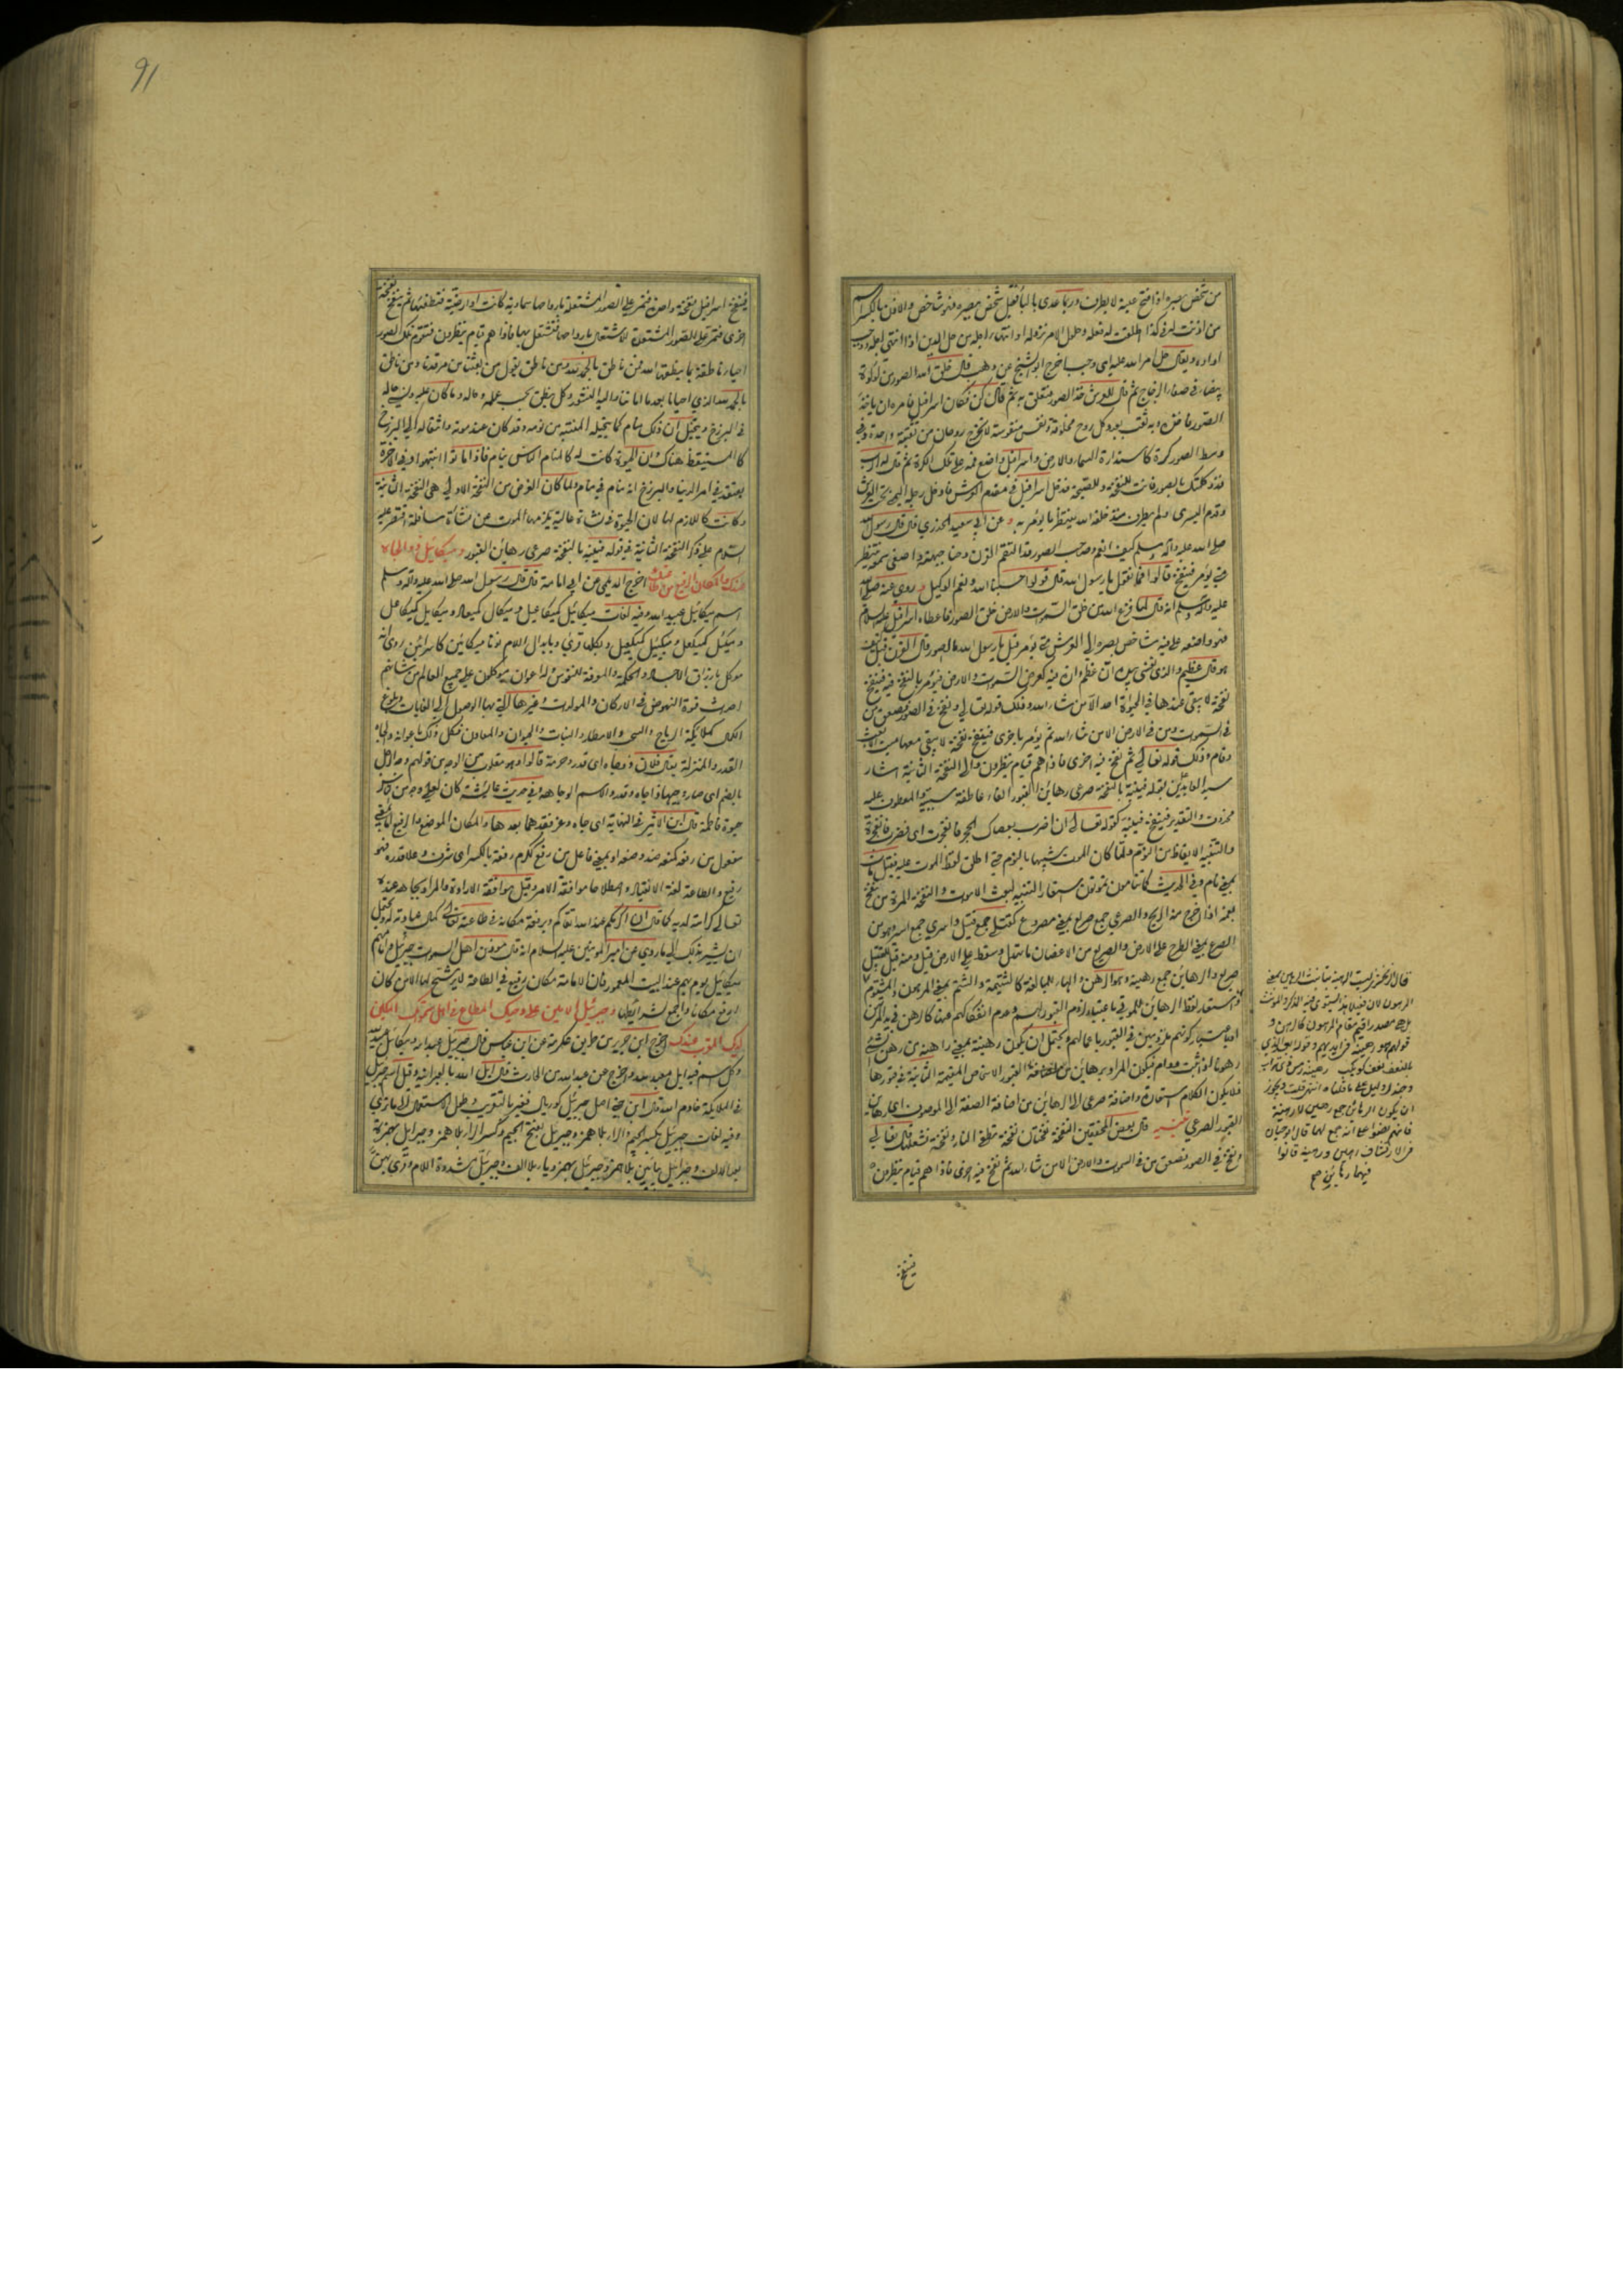 من شخص بصره اذا فتح عينيه لا يطرف وربما عدى بالباء فقيل شخص ببصره فهو شاخص والاذن بالكسر اسم
من اذنت له في كذا اطلقت له فعله وحلول الامر نزوله او انتهاء اجله من حل الدين اذا انتهى اجله ووجب
اداؤه ويقال حل امر الله عليه اي وجب اخرج ابو الشيخ عن وهب قال خلق الله الصور من لؤلؤة
بيضاء في صفاء الزجاج ثم قال للعرش خذ الصور فتعلق به ثم قال كن فكان اسرافيل فامره ان ياخذ
الصور فاخذه وبه ثقب بعدد كل روح مخلوقة ونفس منفوسة لا تخرج روحان من ثقبة واحدة وفي
وسط الصور كوة كاستدارة السماء والارض واسرافيل واضع فمه على تلك الكوة ثم قال له الرب
قد وكلتك بالصور فانت للنفخة وللصيحة فدخل اسرافيل في مقدم العرش فادخل رجله اليمنى تحت العرش
وقدم اليسرى ولم يطرف منذ خلقه الله ينتظر ما يؤمر به وعن ابي سعيد الخدري قال قال رسول الله
صلى الله عليه وآله وسلم كيف انعم وصاحب الصور قد التقم القرن وحنا جبهته واصغى سمعه ينتظر
متى يؤمر فينفخ قالوا فما نقول يا رسول الله قال قولوا حسبنا الله ونعم الوكيل وروى عنه صلى الله
عليه وآله وسلم انه قال لما فرغ الله من خلق السموات والارض خلق الصور فاعطاه اسرافيل عليه السلام
فهو واضعه على فيه شاخص بصره الى العرش متى يؤمر قيل يا رسول الله ما الصور قال القرن قيل كيف
هو قال عظيم والذي نفسي بيده ان عظم دارة فيه كعرض السموات والارض فيؤمر بالنفخ فيه فينفخ
نفخة لا يبقى عندها في الحيوة احد الا من شاء الله وذلك قوله تعالى ونفخ في الصور فصعق من
في السموات ومن في الارض الا من شاء الله ثم يؤمر باخرى فينفخ نفخة لا يبقى معها ميت الا بعث
وقام وذلك قوله تعالى ثم نفخ فيه اخرى فاذا هم قيام ينظرون والى النفخة الثانية اشار
سيد العابدين بقوله فينبه بالنفخة صرعى رهائن القبور الفاء عاطفة سببية والمعطوف عليه
محذوف والتقدير فينفخ فينبه كقوله تعالى ان اضرب بعصاك الحجر فانفجرت اي فضرب فانفجرت
والتنبيه الايقاظ من النوم ولما كان الموت شبيها بالنوم حتى اطلق لفظ الموت عليه فقيل مات
بمعنى نام وفي الحديث كما تنامون تموتون استعار التنبيه لبعث الاموات والنفخة المرة من نفخ
بفمه اذا اخرج منه الريح والصرعى جمع صريع بمعنى مصروع كقتلى جمع قتيل واسرى جمع اسير وهو من
الصرع بمعنى الطرح على الارض والصريع من الاغصان ما تهدل وسقط على الارض قيل ومنه قيل للقتيل
صريع والرهائن جمع رهينة وهو الرهن والهاء للمبالغة كالشتيمة والشتم بمعنى المرهون والمشتوم
واستعار لفظ الرهائن للموتى باعتبار لزوم القبور لهم وعدم انفكاكهم عنها كالرهن في يد المرتهن
او باعتبار كونهم مرهونين في القبور باعمالهم ويحتمل ان يكون رهينة بمعنى راهنة من رهن الشئ
رهونا اذا ثبت ودام فيكون المراد برهائن القبور الاشخاص المقيمة الثابتة في قبورها
فلا يكون الكلام استعارة واضافة صرعى الى الرهائن من اضافة الصفة الى الموصوف اي رهائن
القبور الصرعى تنبيه قال بعض المحققين النفخة نفختان نفخة تطفئ النار ونفخة تشعلها قال تعالى
ونفخ في الصور فصعق من في السموات والارض الا من شاء الله ثم نفخ فيه اخرى فاذا هم قيام ينظرون
المرهون لان فعيلا بمعنى يستوي فيه المذكر والمؤنث
فينفخ
91
فينفخ اسرافيل نفخة واحدة فتمر على الصور المشتعلة بارواحها سماوية كانت او ارضية فتطفئها ثم ينفخ نفخة
اخرى فتمر على الصور المستعدة للاشتعال بارواحها فتشتعل بها فاذا هم قيام ينظرون فتقوم تلك الصور
احياء ناطقة بما ينطقها الله فمن ناطق بالحمد لله ومن ناطق يقول من بعثنا من مرقدنا ومن ناطق
بالحمد لله الذي احيانا بعد ما اماتنا واليه النشور وكل ينطق بحسب علمه وحاله وما كان عليه ونسي حاله
في البرزخ ويتخيل ان ذلك منام كما يتخيله المنتبه من نومه وقد كان عند موته وانتقاله الى البرزخ
كالمستيقظ هناك وان الحيوة كانت له كالمنام الناس نيام فاذا ماتوا انتبهوا وفي الآخرة
يعتقد في امر الدنيا والبرزخ انه منام في منام ولما كان الغرض من النفخة الاولى هي النفخة الثانية
وكانت كاللازم لها لان الحيوة في نشأة عالية يلزمها الموت عن نشأة سافلة اقتصر عليه
السلام على ذكر النفخة الثانية في قوله فينبه بالنفخة صرعى رهائن القبور وميكائيل ذو الجاه
عندك والمكان الرفيع من طاعتك اخرج الديلمي عن ابي امامة قال قال رسول الله صلى الله عليه وآله وسلم
اسم ميكائيل عبيد الله وفيه لغات ميكائيل كميكاعيل وميكال كميعاد وميكائل كميكاعل
وميكئل كميكعل وميكئيل كميكعيل وبكلها قرئ وبابدال اللام نونا ميكائين كاسرائين روي انه
موكل بارزاق الاجساد والحكمة والمعرفة للنفوس وله اعوان موكلون على جميع العالم من شانهم
احداث قوة النهوض في الاركان والمولدات وغيرها التي بها الوصول الى الغايات وبلوغ
الكمال كملائكة الرياح والسحب والامطار والنبات والحيوان والمعادن فكل ذلك باعوانه والجاه
القدر والمنزلة يقال فلان ذو جاه اي قدر وحرمة قالوا وهو مقلوب من الوجه من قولهم وجه الرجل
بالضم اي صار وجيها ذا جاه وقدر والاسم الوجاهة وفي حديث عائشة كان لعلي وجه من الناس
حيوة فاطمة قال ابن الاثير في النهاية اي جاه وعز فقدهما بعدها والمكان الموضع والرفيع اما بمعنى
مفعول من رفعه كمنعه ضد وضعه او بمعنى فاعل من رفع ككرم رفعة بالكسر اي شرف وعلا قدره فهو
رفيع والطاعة لغة الانقياد واصطلاحا موافقة الامر وقيل موافقة الارادة والمراد بجاهه عنده
تعالى كرامته لديه كما قال ان اكرمكم عند الله اتقاكم وبرفعة مكانه في طاعته تعالى كمال عبادته له ويحتمل
ان يشير بذلك الى ما روي عن امير المؤمنين عليه السلام انه قال مؤذن اهل السموات جبرئيل وامامهم
ميكائيل يؤم بهم عند البيت المعمور فان الامامة مكان رفيع في الطاعة لا يترشح لها الا من كان
ارفع مكانا واجمع لشرائطها وجبرئيل الامين على وحيك المطاع في اهل سمواتك المكين
لديك المقرب عندك اخرج ابن جرير من طريق عكرمة عن ابن عباس قال جبرئيل عبد الله وميكائيل عبيد الله
وكل اسم فيه ايل معبد لله واخرج عن عبد الله بن الحارث قال ايل الله بالعبرانية وقيل اسم جبرئيل
في الملائكة خادم الله قال ابن جني اصل جبرئيل كوريال فغير بالتعريب وطول الاستعمال الى ما ترى
وفيه لغات جبريل بكسر الجيم والراء بلا همز وجبريل بفتح الجيم وكسر الراء بلا همز وجبرايل بهمزة
بعد الالف وجبراييل بيائين بلا همزة وجبرئيل بهمز وياء بلا الف وجبرئل مشددة اللام وقرئ بهن